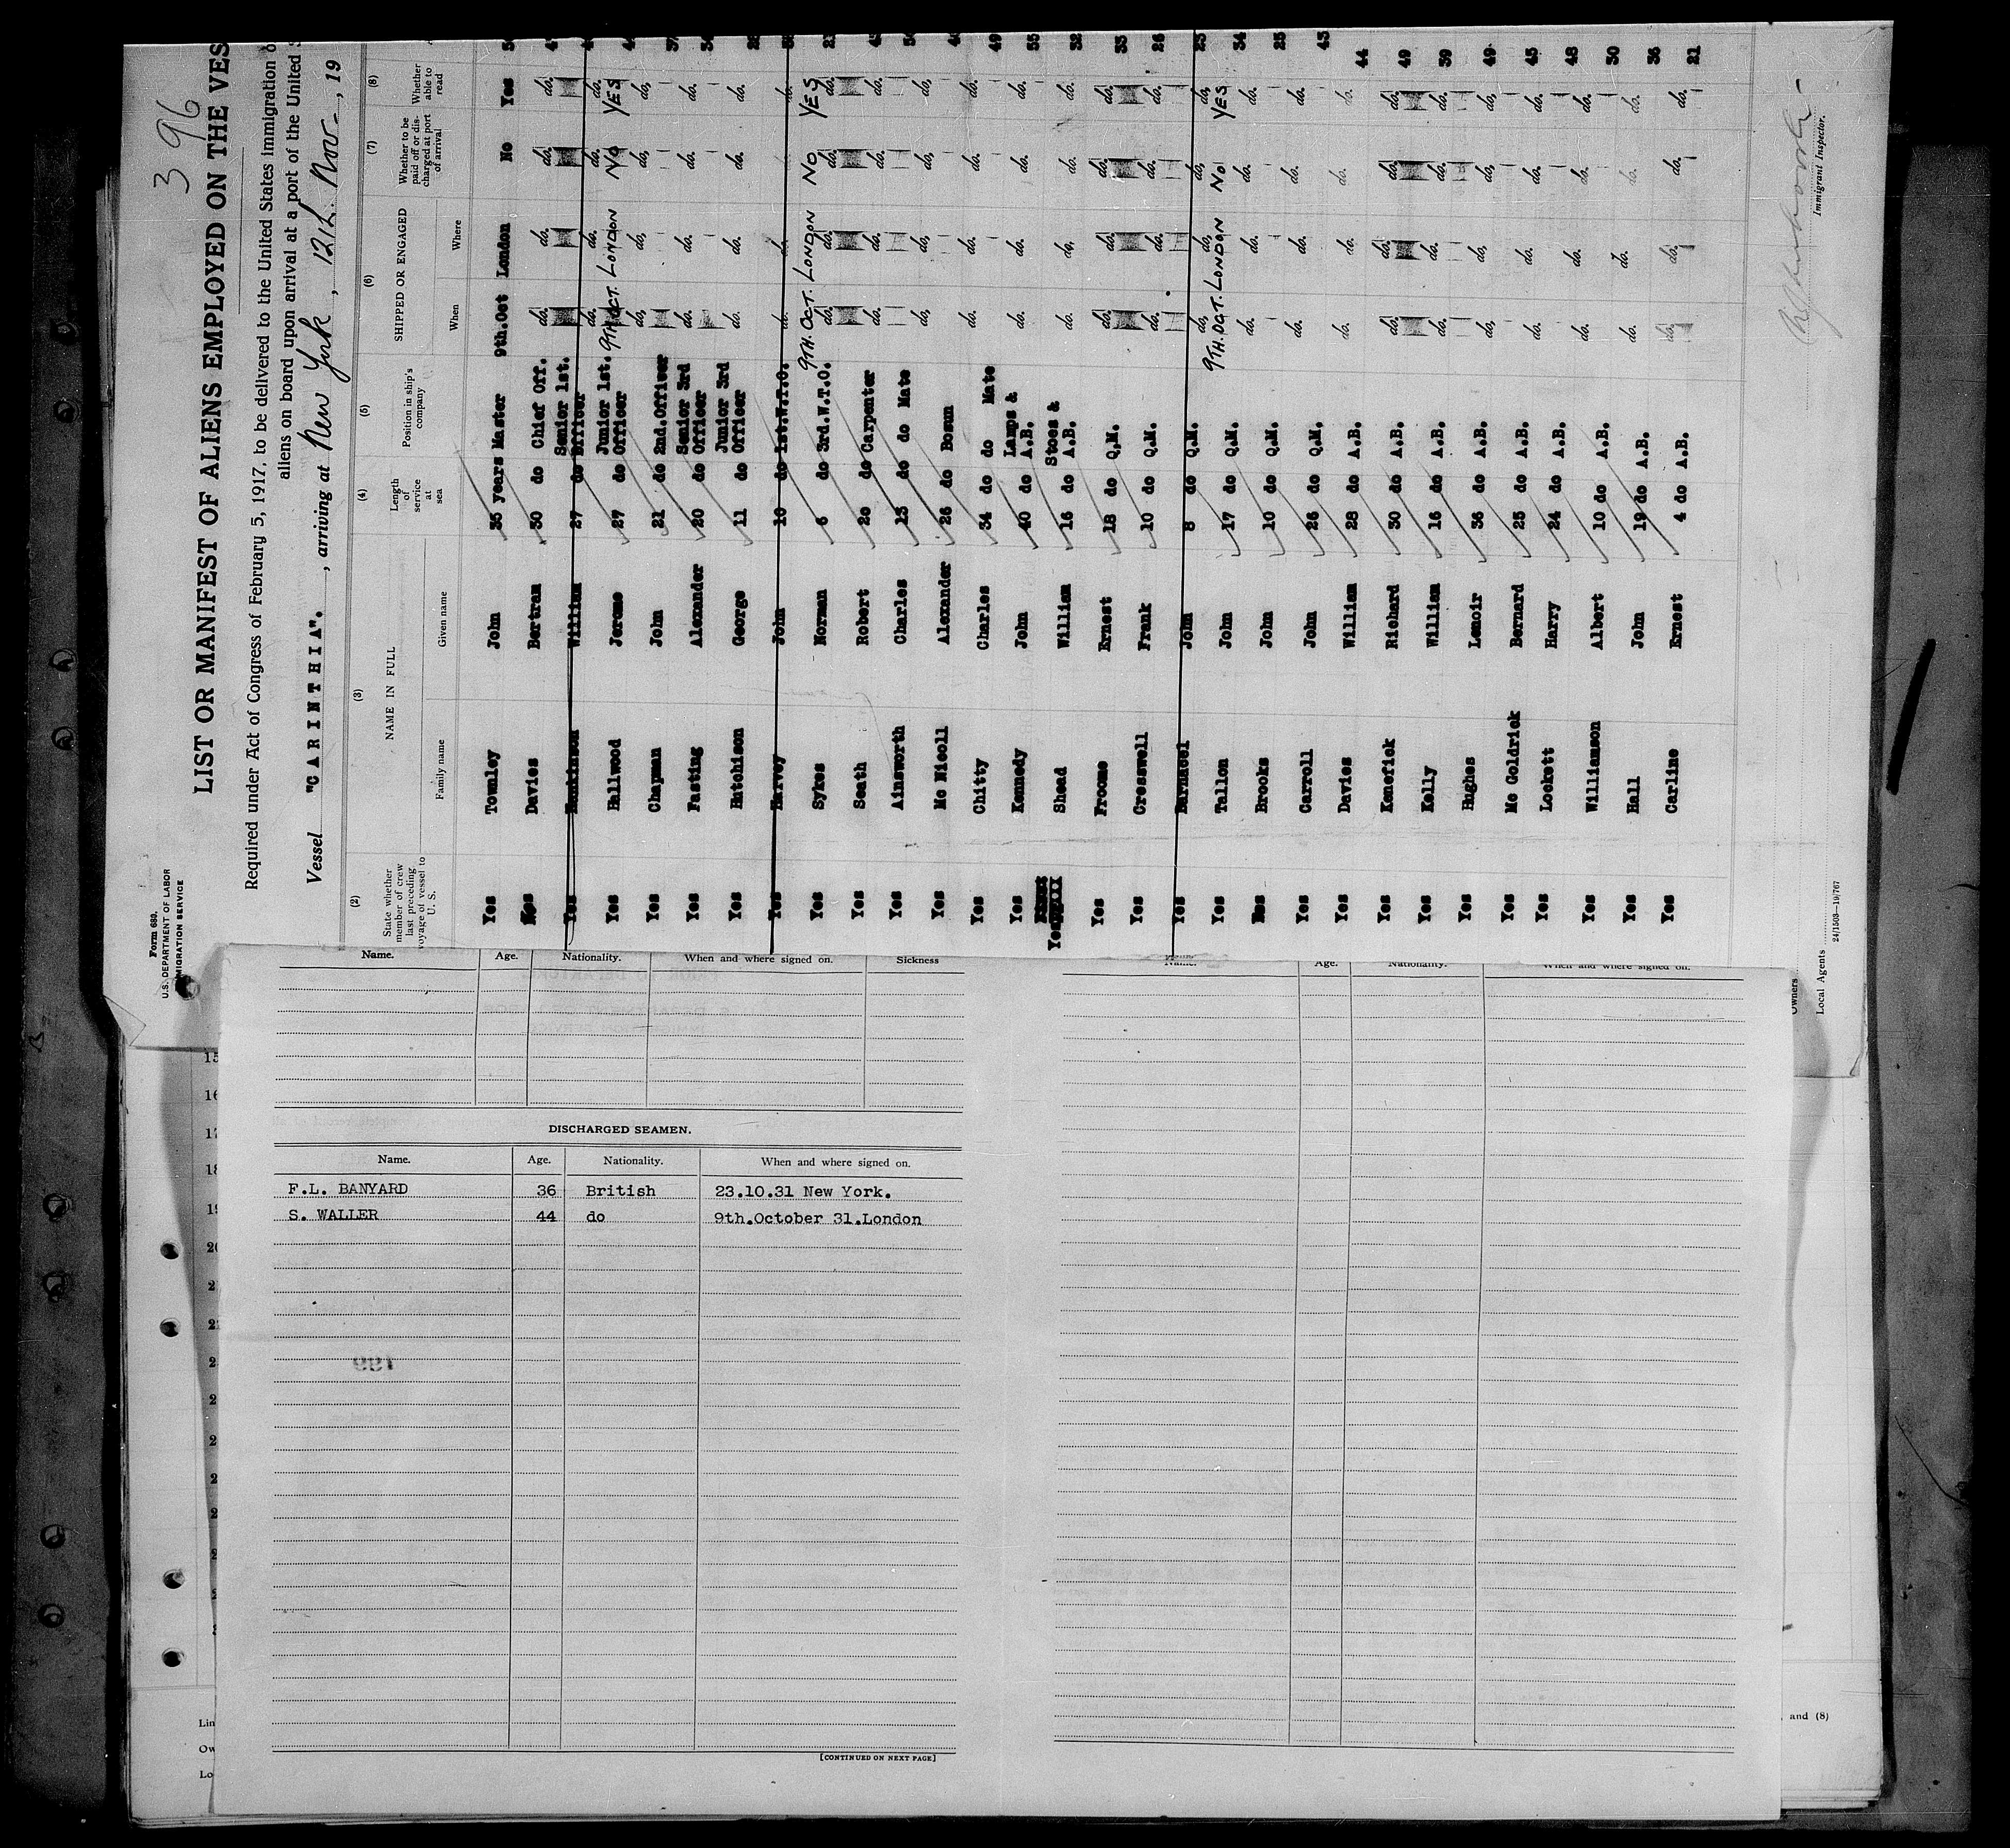 3 96
Form 680.
U.S. DEPARTMENT OF LABOR
IMMIGRATION SERVICE
LIST OR MANIFEST OF ALIENS EMPLOYED ON THE VES
Required under Act of Congress of February 5, 1917, to be delivered to the United States immigration o
aliens on board upon arrival at a port of the United S
Vessel "CARINTHIA", arriving at New York, 12th. Nov-, 19
(2) (3) (4) (5) (6) (7) (8)
State whether member of crew last preceding voyage of vessel to U. S. NAME IN FULL Family name Given name Length of service at sea Position in ship's company SHIPPED OR ENGAGED When Where Whether to be paid off or discharged at port of arrival Whether able to read
Yes Townley John 35 years Master 9th.Oct London No Yes
Davies Bertram 30 do Chief Off. do. do. do. do.
Yes William 27 do Senior 1st. Officer do. do. do. do.
Yes Hallwood Jerome 27 do Junior 1st. Officer 9TH OCT. LONDON NO YES
Yes Chapman John 21 do 2nd.Officer do, do, do, do,
Yes Fasting Alexander 20 do Senior 3rd Officer do. do. do. do.
Yes Hutchison George 11 do Junior 3rd Officer do. do. do. do.
Yes Harvey John 10 do 1st.W.T.O. do. do. do.
Yes Sykes Norman 6 do 3rd.W.T.O. 9TH. OCT. LONDON NO YES
Yes Seath Robert 20 do Carpenter do. do. do. do.
Yes Ainsworth Charles 13 do do Mate do, do, do, do, 
Yes Mc Nicoll Alexander 26 do Bosun do. do. do. do.
Yes Chitty Charles 34 do do Mate do. do. do. do. 49
Yes Kennedy John 40 do Lamps & A.B. do. do. do. do. 55
Yes Shead William 16 do Stoes & A.B. do. do. do. do. 32
Yes Froome Ernest 18 do Q.M. do. do. do. do. 33
Yes Cresswell Frank 10 do Q.M. do. do. do. do. 26
Yes John 8 do Q.M. do, do, do, do, 23
Yes Tallon John 17 do Q.M. 9TH. OCT. LONDON NO YES 34
Brooks John 10 do Q.M. do. do. do. do. 25
Yes Carroll John 26 do Q.M. do. do. do. do. 43
Yes Davies William 28 do A.B. do. do. do. do. 44
Yes Kenefick Richard 30 do A.B. do. do. do. do. 49
Yes Kelly William 16 do A.B. do. do. do. do. 39
Yes Hughes Lenoir 36 do A.B. do. do. do. do. 49
Yes Mc Goldrick Bernard 25 do A.B. do. do. do. do. 45
Yes Lockett Harry 24 do A.B. do. do. do. do. 48
Yes Williamson Albert 10 do A.B. do. do. do. do. 30
Yes Hall John 19 do A.B. do. do. do. do. 36
Yes Carline Ernest 4 do A.B. do. do. do. do. 21
Immigrant Inspector.
Owners
Local Agents
24/1503—19/767
Name. Age. Nationality. When and where signed on. Sickness
Name. Age. Nationality. When and where signed on.
DISCHARGED SEAMEN.
Name. Age. Nationality. When and where signed on.
F.L. BANYARD 36 British 23.10.31 New York.
S. WALLER 44 do 9th.October 31.London
[CONTINUED ON NEXT PAGE]
15
16
17
and (8)